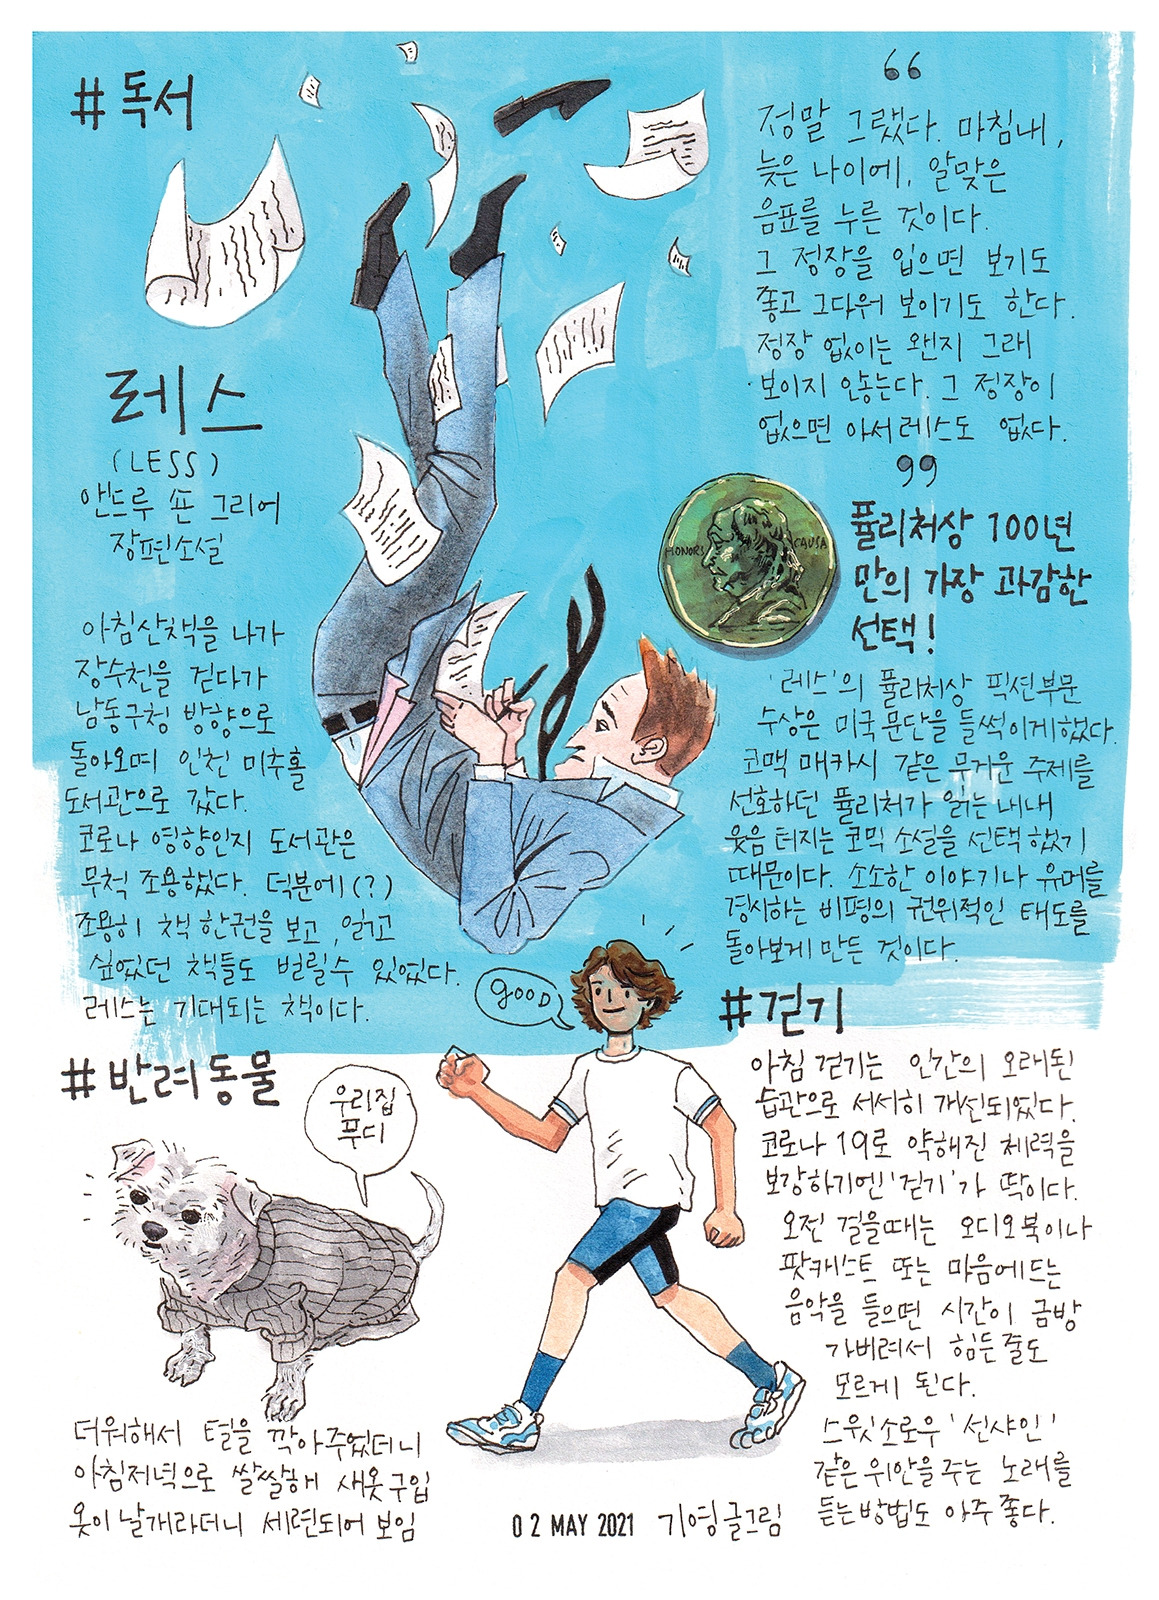 #독서
레스
(LESS)
안드루 숀 그리어
장편소설
아침산책을 나가
장수천을 걷다가
남동구청 방향으로
돌아오며 인천 미추홀
도서관으로 갔다.
코로나 영향인지 도서관은
무척 조용했다. 덕분에(?)
조용히 책 한권을 보고, 읽고
싶었던 책들도 빌릴수 있었다.
레스는 기대되는 책이다.
“
정말 그랬다. 마침내,
늦은 나이에, 알맞은
음표를 누른 것이다.
그 정장을 입으면 보기도
좋고 그다워 보이기도 한다.
정장 없이는 왠지 그래
보이지 않는다. 그 정장이
없으면 아서레스도 없다.
”
HONORIS CAUSA
퓰리처상 100년
만의 가장 과감한
선택!
'레스'의 퓰리처상 픽션부문
수상은 미국문단을 들썩이게했다.
코맥 매카시 같은 무거운 주제를
선호하던 퓰리처가 읽는내내
웃음 터지는 코믹 소설을 선택했기
때문이다. 소소한 이야기나 유머를
경시하는 비평의 권위적인 태도를
돌아보게 만든 것이다.
#반려동물
우리집
푸디
더워해서 털을 깎아주었더니
아침저녁으로 쌀쌀해 새옷구입
옷이 날개라더니 세련되어 보임
GOOD
#걷기
아침 걷기는 인간의 오래된
습관으로 서서히 개선되었다.
코로나 19로 약해진 체력을
보강하기엔 '걷기'가 딱이다.
오전 걸을때는 오디오북이나
팟캐스트 또는 마음에드는
음악을 들으면 시간이 금방
가버려서 힘든줄도
모르게 된다.
스윗소로우 '선샤인'
같은 위안을 주는 노래를
듣는방법도 아주 좋다.
02 MAY 2021 기영글그림